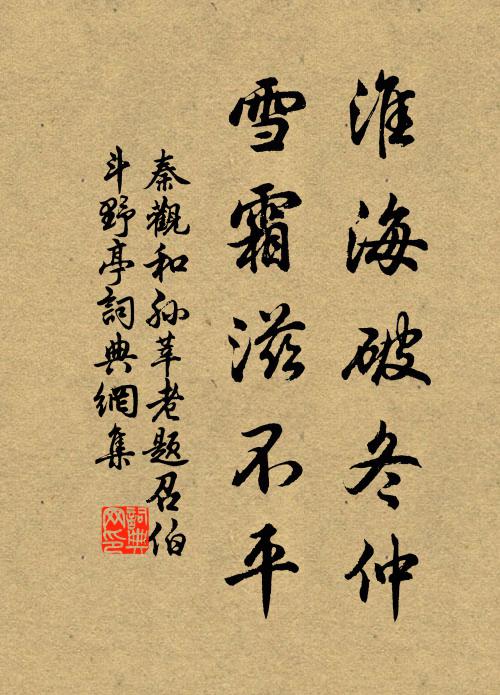 淮海破冬仲
雪霜滋不平
秦觀和孙莘老题召伯
斗野亭詞典網集
詞典網印